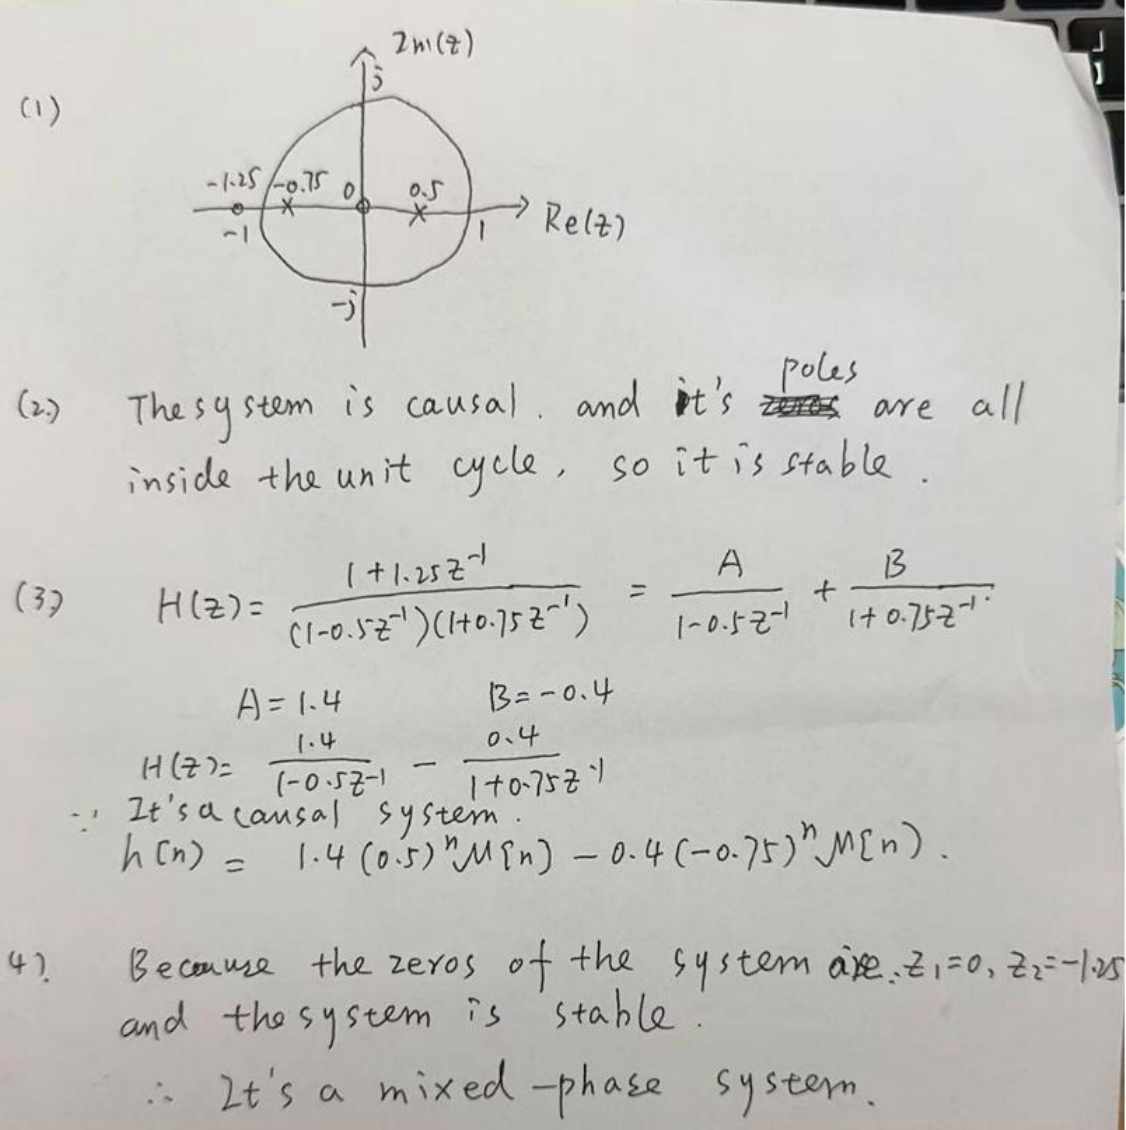 Im(z)
(1)
j
-1.25 -0.75 0 0.5
-1 1 Re(z)
-j
(2) The system is causal. and it's poles are all
inside the unit cycle, so it is stable.
(3) H(z) = \frac{1+1.25z^{-1}}{(1-0.5z^{-1})(1+0.75z^{-1})} = \frac{A}{1-0.5z^{-1}} + \frac{B}{1+0.75z^{-1}}.
A = 1.4 B = -0.4
H(z) = \frac{1.4}{1-0.5z^{-1}} - \frac{0.4}{1+0.75z^{-1}}
∵ It's a causal system.
h[n] = 1.4(0.5)^n μ[n] - 0.4(-0.75)^n μ[n].
4). Because the zeros of the system are. z_1=0, z_2=-1.25
and the system is stable.
∴ It's a mixed-phase system.